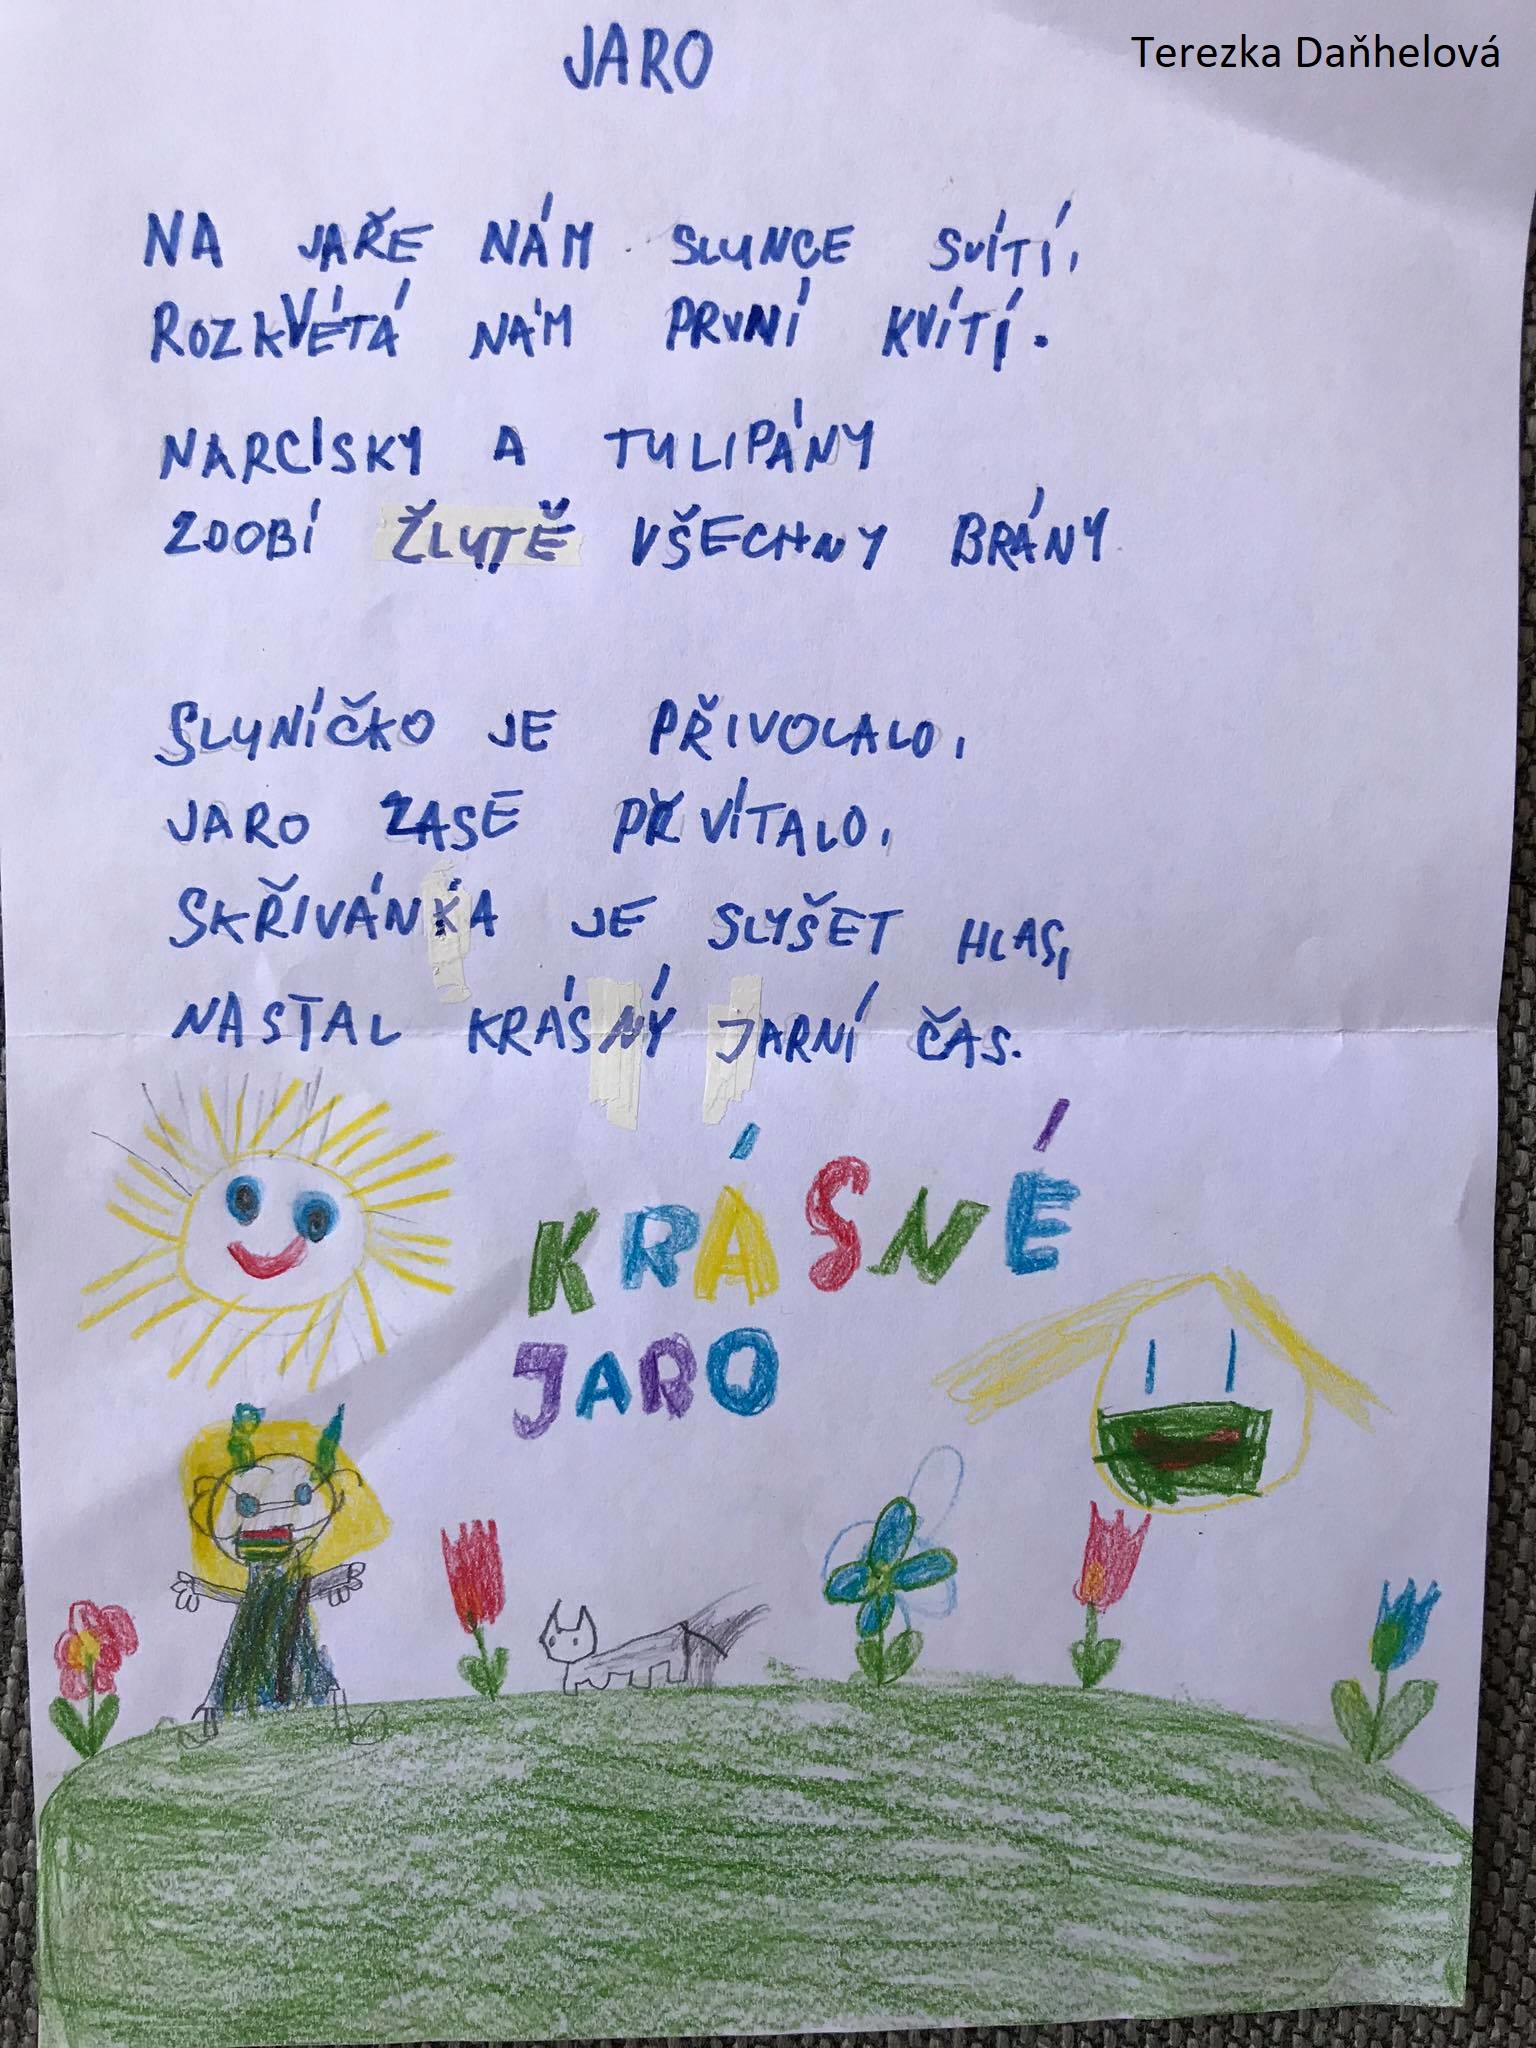 JARO
Terezka Daňhelová
NA JAŘE NÁM SLUNCE SVÍTÍ,
ROZKVÉTÁ NÁM PRVNÍ KVÍTÍ.
NARCÍSKY A TULIPÁNY
ZDOBÍ ŽLUTĚ VŠECHNY BRÁNY
SLUNÍČKO JE PŘIVOLALO,
JARO ZASE PŘVÍTALO,
SKŘIVÁNKA JE SLYŠET HLAS,
NASTAL KRÁSNÝ JARNÍ ČAS.
KRÁSNÉ
JARO